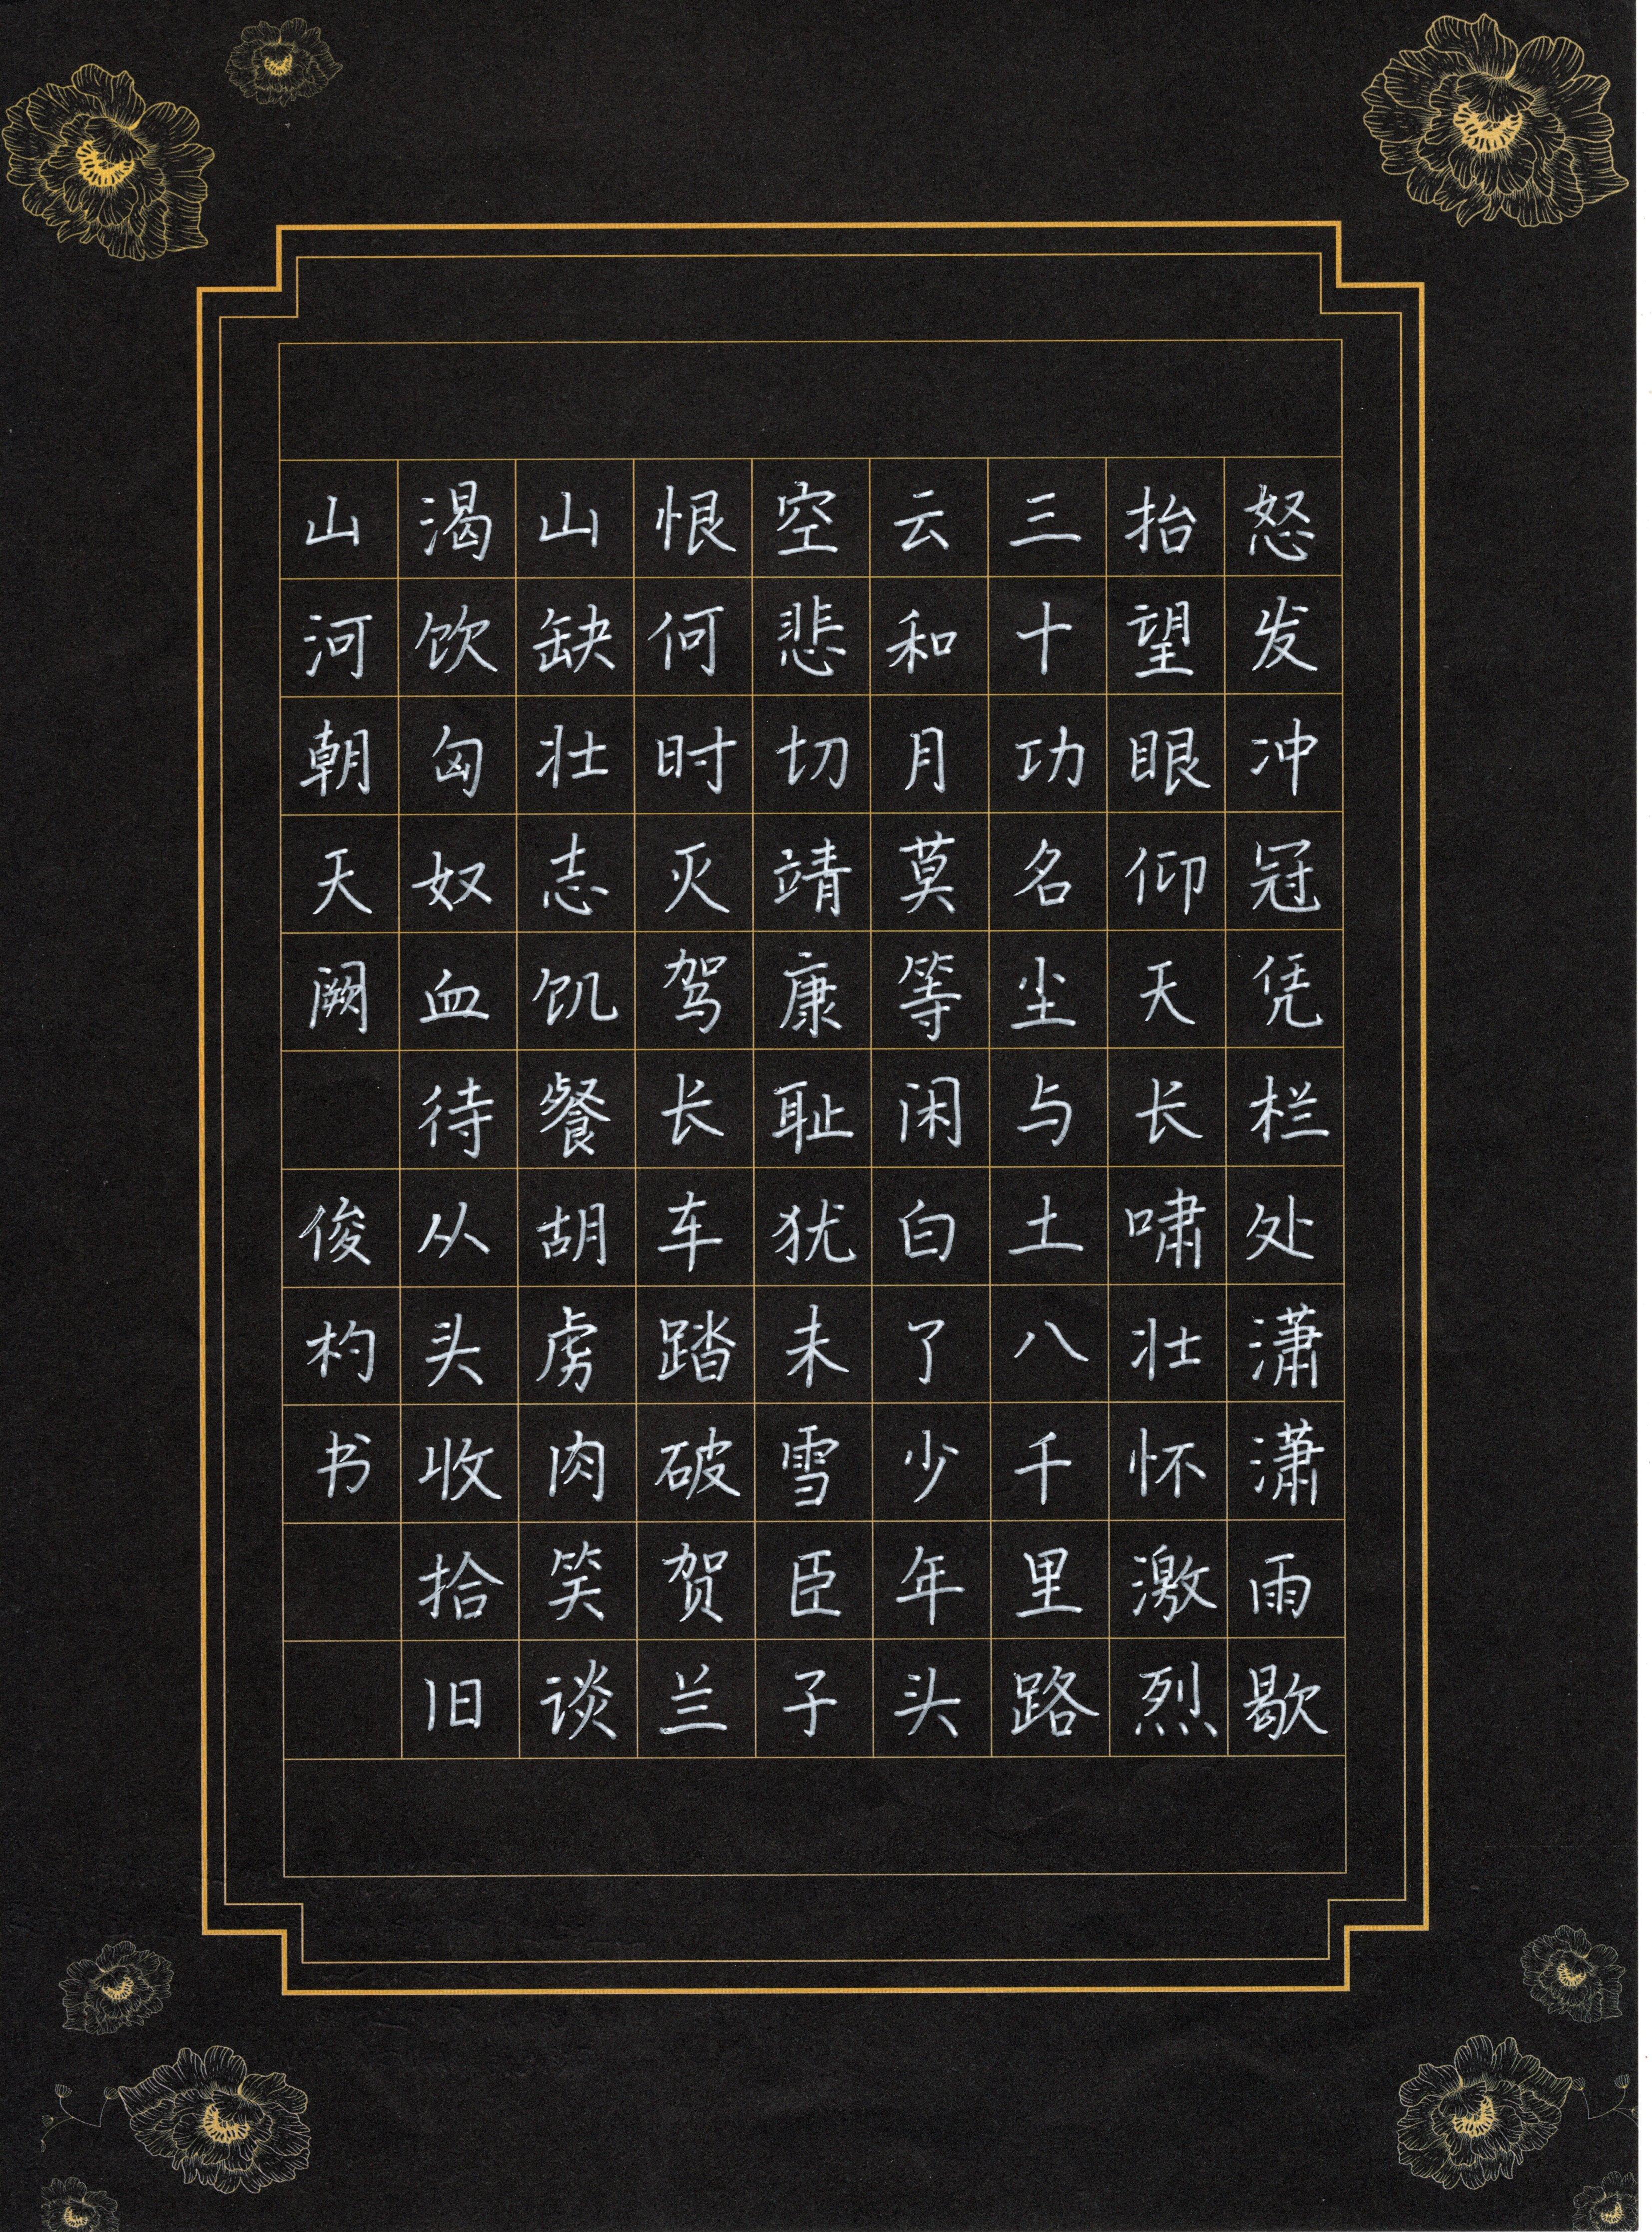 怒发冲冠凭栏处潇潇雨歇
抬望眼仰天长啸壮怀激烈
三十功名尘与土八千里路
云和月莫等闲白了少年头
空悲切靖康耻犹未雪臣子
恨何时灭驾长车踏破贺兰
山缺壮志饥餐胡虏肉笑谈
渴饮匈奴血待从头收拾旧
山河朝天阙 俊杓书